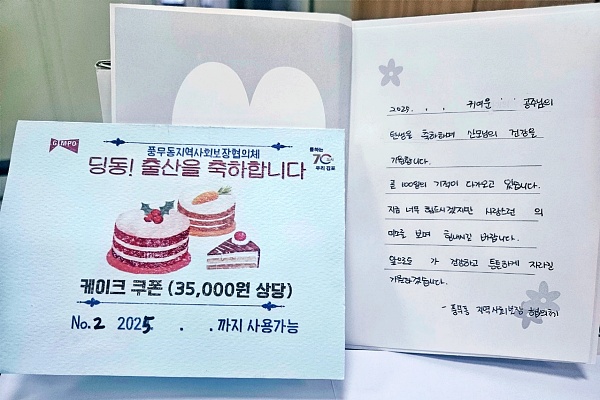 GIMPO
풍무동지역사회보장협의체
통하는
70
우리 김포
딩동! 출산을 축하합니다
케이크 쿠폰 (35,000원 상당)
No.2 2025. . .까지 사용가능
2025. . . 귀여운 공주님의
탄생을 축하하며 산모님의 건강을
기원합니다.
곧 100일의 기적이 다가오고 있습니다.
지금 너무 힘드시겠지만 사랑스런 의
미소를 보며 힘내시길 바랍니다.
앞으로도 가 건강하고 튼튼하게 자라길
기원하겠습니다.
- 풍무동 지역사회보장 협의체